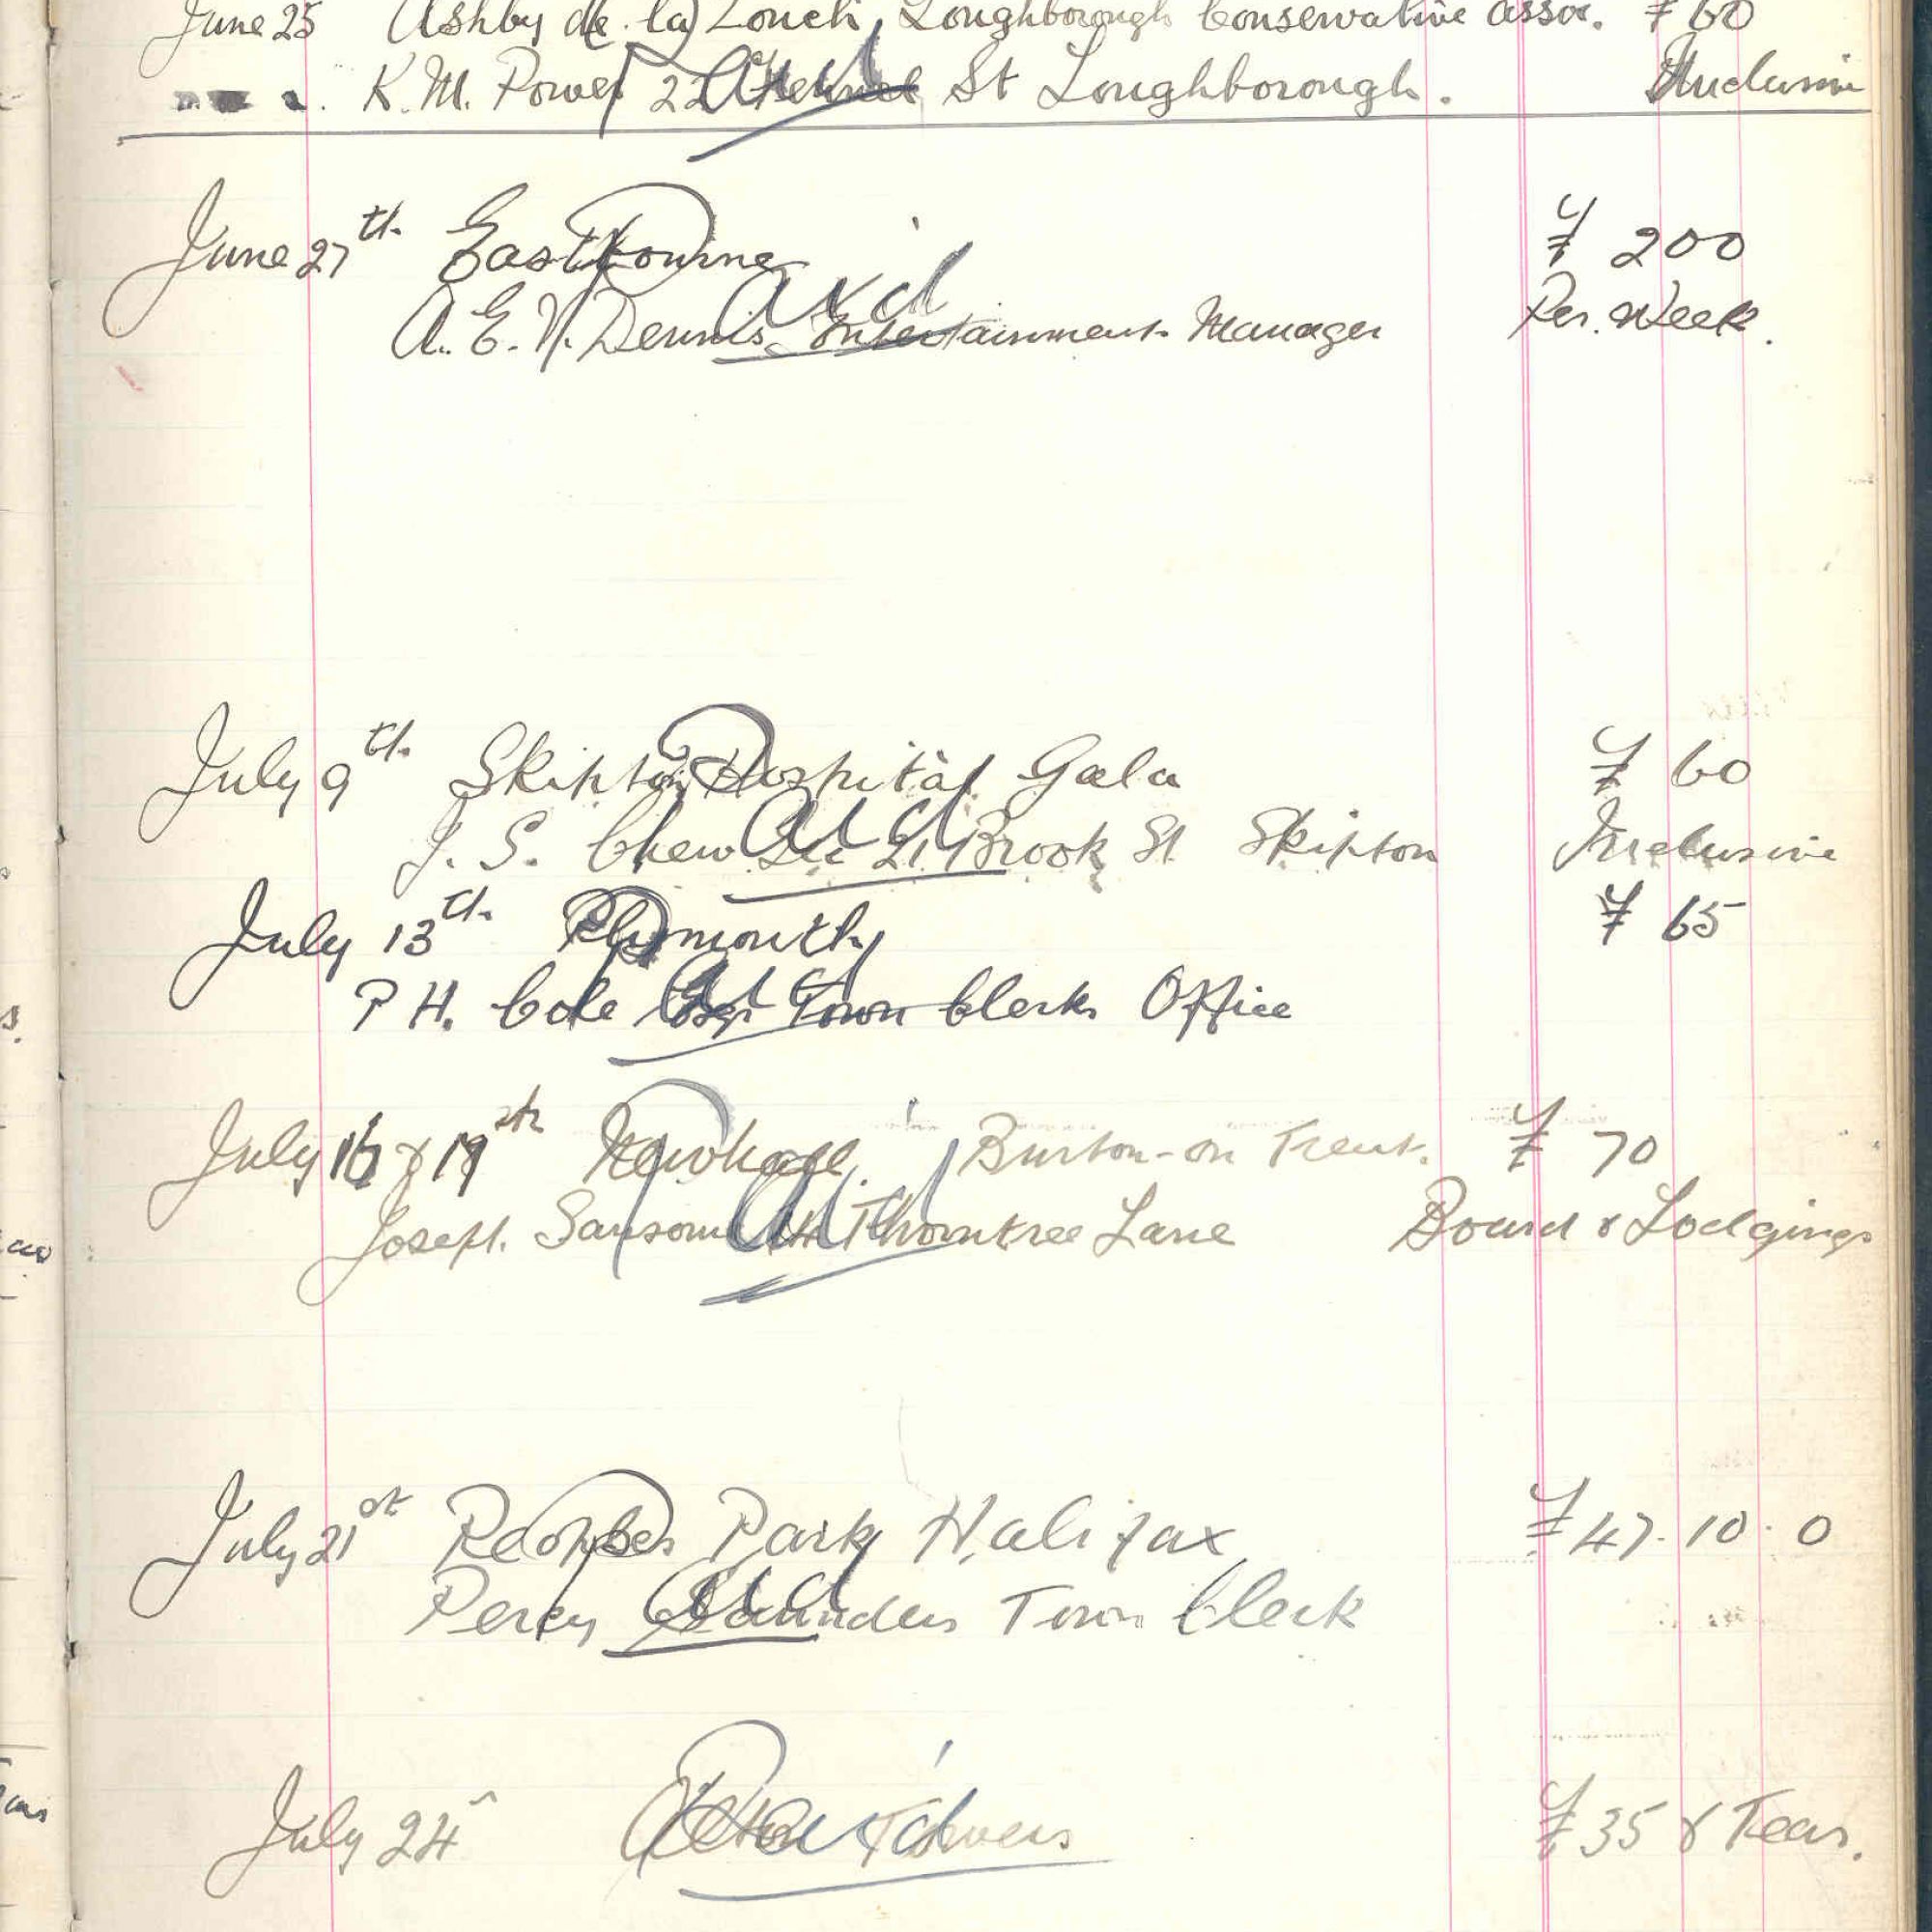 June 25 Ashby de la Zouch, Loughborough Conservative Assoc. £60
K. M. Power 22 St Loughborough. Inclusive
Paid
June 27th Eastbourne £200
A. E. N. Dennis. Entertainment Manager Per. Week.
Paid
July 9th Skipton Hospital Gala £60
J. S. Chew Sec 21 Brook St Skipton Inclusive
Paid
July 13th Plymouth £65
P H. Cole Esqr Town Clerks Office
Paid
July 16 & 19th Newhall. Burton-on Trent. £70
Joseph. Sansome Thorntree Lane Board & Lodgings
Paid
July 21st Park Halifax £47. 10. 0
Percy Saunders Town Clerk
Paid
July 24th Alton Towers £35 & Teas.
Paid